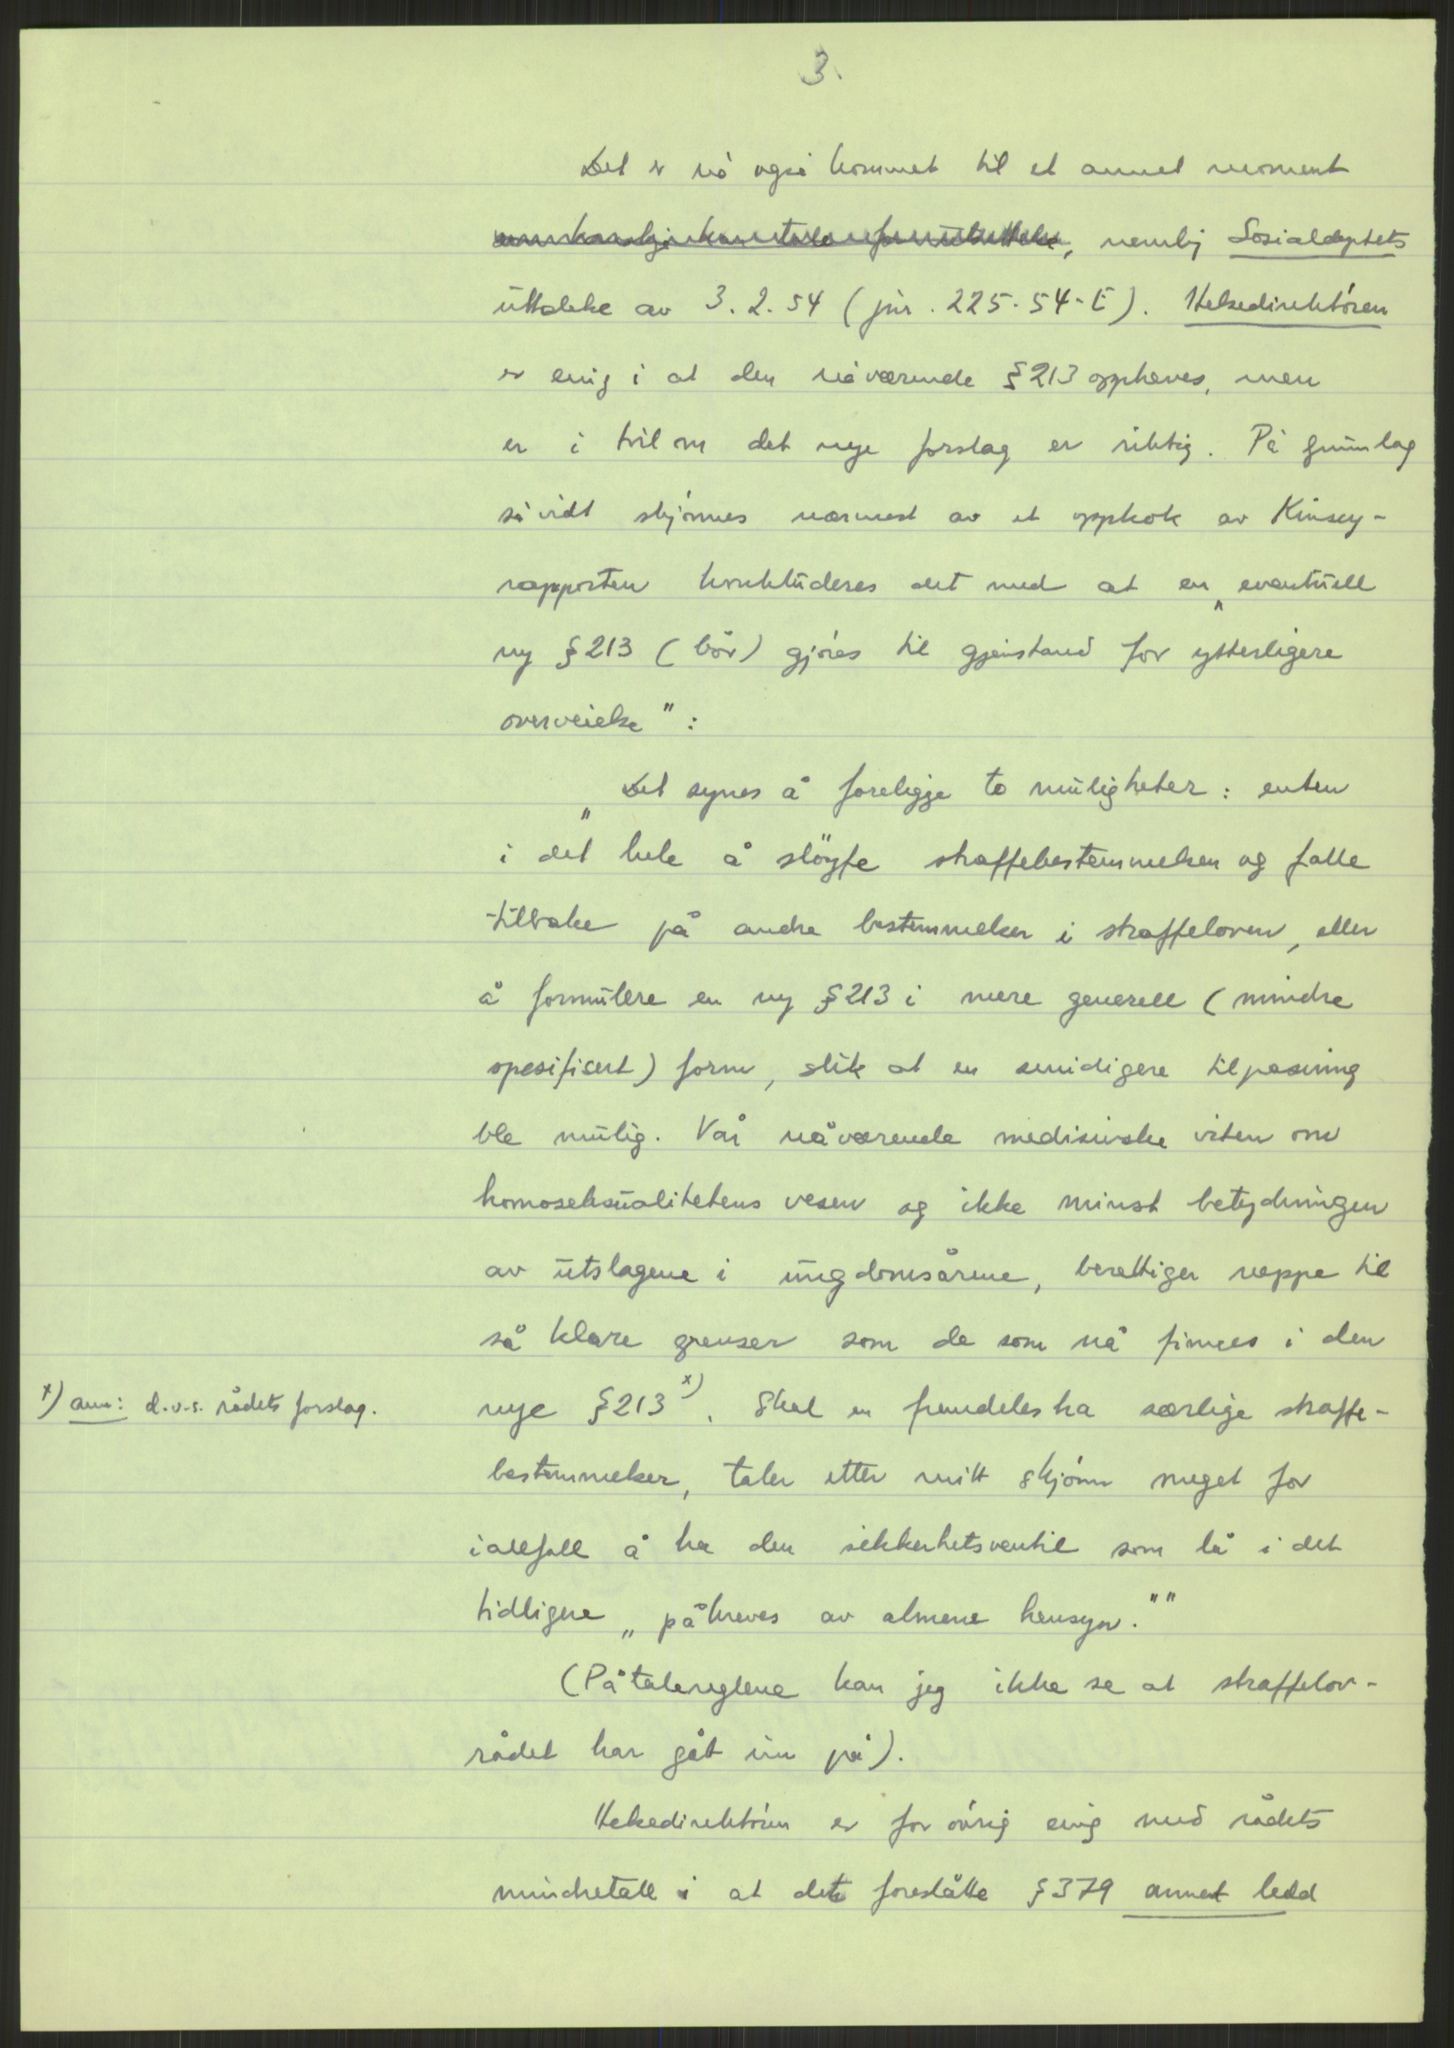 3.
Det er nå også kommet til et annet moment
som kanskje kan tale for utsettelse, nemlig Sosialdeptets
uttalelse av 3.2.54 (jnr. 225-54-E). Helsedirektören
er enig i at den nåværende §213 oppheves, men
er i tvil om det nye forslag er riktig. På grunnlag
såvidt skjönnes nærmest av et oppkok av Kinsey-
rapporten konkluderes det med at en „eventuell
ny §213 (bör) gjöres til gjenstand for ytterligere
overveielse":
„Det synes å foreligge to muligheter: enten
i det hele å slöyfe straffebestemmelsen og falle
tilbake på andre bestemmelser i straffeloven, eller
å formulere en ny §213 i mere generell (mindre
spesifisert) form, slik at en smidigere tilpasning
ble mulig. Vår nåværende medisinske viten om
homoseksualitetens vesen og ikke minst betydningen
av utslagene i ungdomsårene, berettiger neppe til
så klare grenser som de som nå finnes i den
x) anm: d.v.s. rådets forslag.
nye §213 x). Skal en fremdeles ha særlige straffe-
bestemmelser, taler etter mitt skjönn meget for
iallfall å ha den sikkerhetsventil som lå i det
tidligere „påkreves av almene hensyn.""
(Påtalereglene kan jeg ikke se at straffelov-
rådet har gått inn på).
Helsedirektören er for övrig enig med rådets
mindretall i at det foreslåtte §379 annet ledd